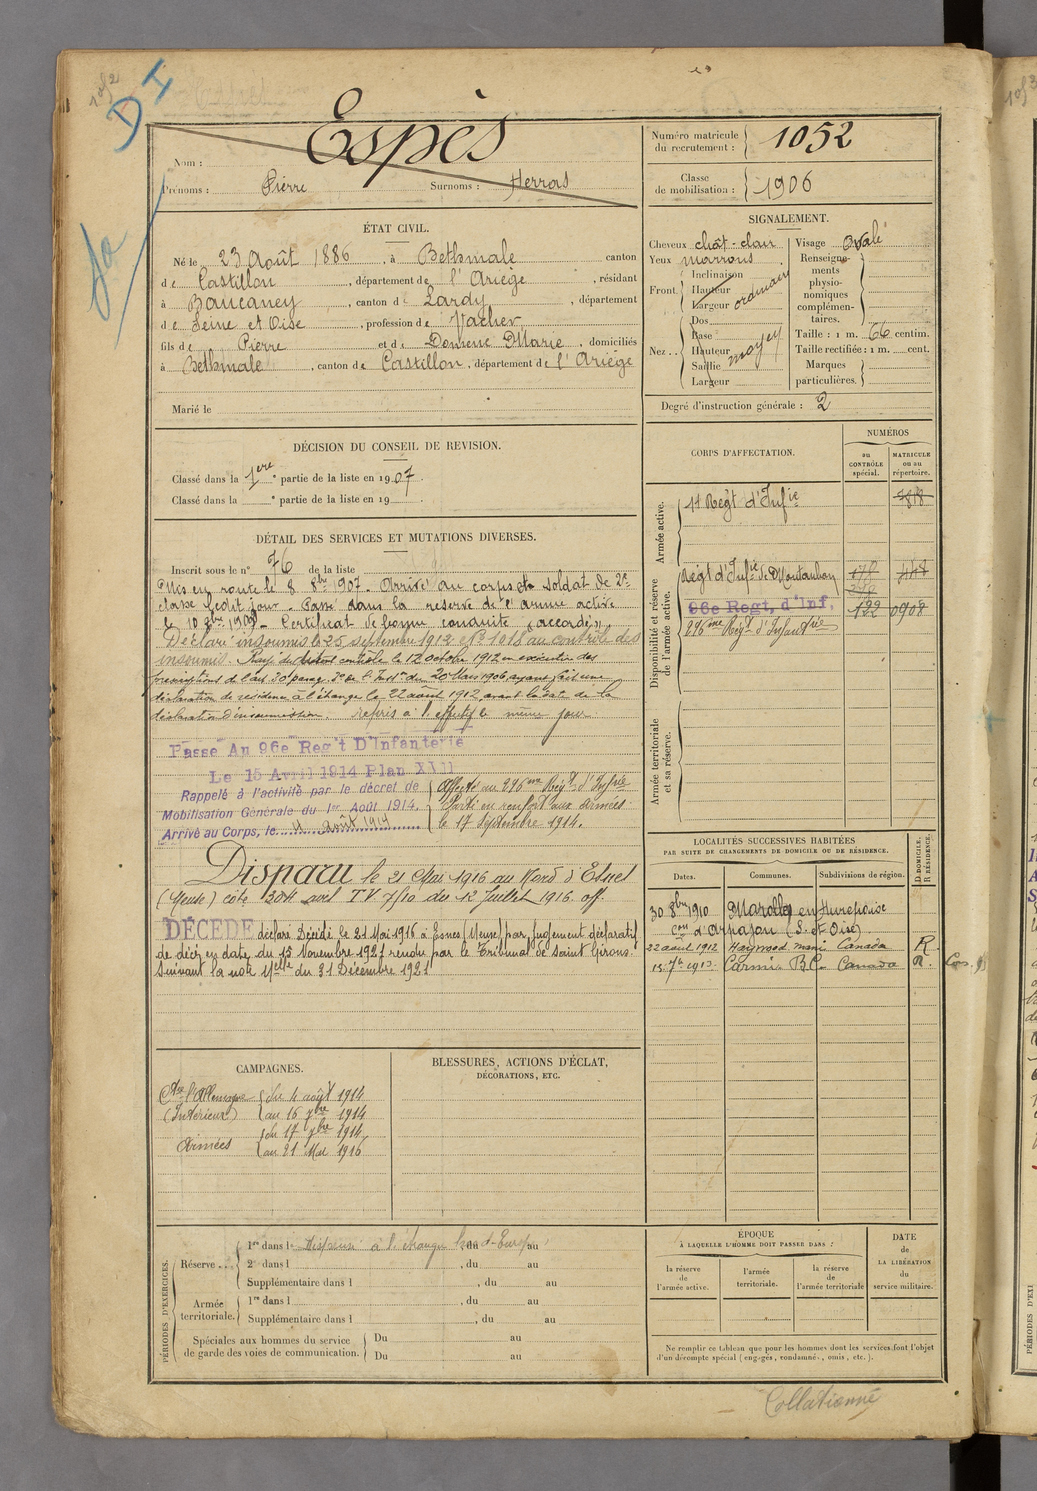 1052
DI
Espès
Nom :
Prénoms : Pierre Surnoms : Herrors
Numéro matricule
du recrutement : 1052
Classe
de mobilisation : 1906
ÉTAT CIVIL.
Né le 23 Août 1886, à Bethmale canton
de Castillon, département de l'Ariège, résidant
à Baucaney, canton de Lardy, département
de Seine et Oise, profession de Vacher
fils de Pierre et de Domenc Marie, domiciliés
à Bethmale, canton de Castillon, département de l'Ariège
Marié le
SIGNALEMENT.
Cheveux chât-clair
Yeux marrons
Front Inclinaison
Hauteur
Largeur ordinaire
Nez .. Dos
Base
Hauteur moyen
Saillie
Largeur
Visage Ovale
Renseigne-
ments
physio-
nomiques
complémen-
taires.
Taille : 1 m. 66 centim.
Taille rectifiée : 1 m. cent.
Marques
particulières.
Degré d'instruction générale : 2
DÉCISION DU CONSEIL DE REVISION.
Classé dans la 1ere partie de la liste en 1907.
Classé dans la e partie de la liste en 19
DÉTAIL DES SERVICES ET MUTATIONS DIVERSES.
Inscrit sous le n° 76 de la liste
Mis en route le 8 8bre 1907. Arrivé au corps et soldat de 2e
classe ledit jour. Passé dans la réserve de l'armée active
le 10 8bre 1909. Certificat de bonne conduite "accordé".
Déclaré insoumis le 25 septembre 1912 N° 1018 au contrôle des
insoumis. Rayé du contrôle le 12 octobre 1912 en exécution des
prescriptions de l'art. 30 parag. 3° de l'Instion du 20 Mars 1906 ayant fait une
déclaration de résidence à l'étranger le 22 août 1912, avant la date de la
déclaration d'insoumission. repris à l'effectif le même jour
Passé Au 96e Reg't D'Infanterie
Le 15 Avril 1914 Plan XVII
Rappelé à l'activité par le décret de
Mobilisation Générale du 1er Août 1914.
Arrivé au Corps, le 4 août 1914
Affecté au 296me Régt d'Infrie
Parti en renfort aux armées
le 17 Septembre 1914.
Disparu le 21 Mai 1916 au Nord d'Esnes
(Meuse) côte 304 avis TV 7/10 du 12 Juillet 1916. off.
DÉCÉDÉ déclaré Décédé le 21 Mai 1916 à Esnes (Meuse) par Jugement déclaratif
de décès en date du 15 Novembre 1921 rendu par le Tribunal de Saint Girons.
Suivant la note Melle du 31 Décembre 1921
CORPS D'AFFECTATION.
NUMÉROS
au
CONTRÔLE
spécial.
MATRICULE
ou au
répertoire.
Armée active.
17 Régt d'Infie
Disponibilité et réserve
de l'armée active.
Régt d'Infie de Montauban 178
96e Regt, d'Inf, 122 0908
296me Régt d'Infantrie
Armée territoriale
et sa réserve.
LOCALITÉS SUCCESSIVES HABITÉES
PAR SUITE DE CHANGEMENTS DE DOMICILE OU DE RÉSIDENCE.
Dates. Communes. Subdivisions de région. D. DOMICILE. R. RÉSIDENCE.
30 8bre 1910 Marolles en Hurepoise
Con d'Arpajon (S. et Oise)
22 août 1912 Haywood mani Canada R.
15 7bre 1913 Carmi B.C. Canada R.
CAMPAGNES.
Ctre l'Allemagne du 4 août 1914
(Intérieur) au 16 7bre 1914
Armées du 17 7bre 1914
au 21 Mai 1916
BLESSURES, ACTIONS D'ÉCLAT,
DÉCORATIONS, ETC.
PÉRIODES D'EXERCICES.
Réserve ... 1re dans l Dispensé à l'étranger du au
2e dans l , du au
Supplémentaire dans l , du au
Armée
territoriale. 1re dans l , du au
Supplémentaire dans l , du au
Spéciales aux hommes du service
de garde des voies de communication. Du au
Du au
ÉPOQUE
À LAQUELLE L'HOMME DOIT PASSER DANS :
la réserve
de
l'armée active.
l'armée
territoriale.
la réserve
de
l'armée territoriale
DATE
de
LA LIBÉRATION
du
service militaire.
Ne remplir ce tableau que pour les hommes dont les services font l'objet
d'un décompte spécial (engagés, condamnés, omis, etc.).
Collationné
PÉRIODES D'EXE